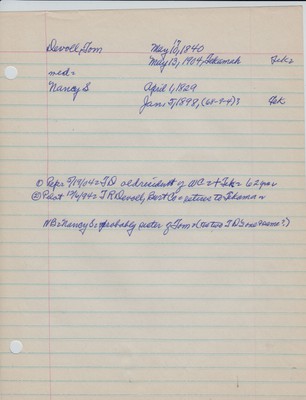 Devoll, Tom May 10, 1840
May 13, 1904, Tekamah Tek
med=
Nancy S April 1, 1829
Jan 5, 1898, (68-9-4)? Tek
① 5/19/04 = TD old resident of WC + Tek = 62 yrs
② T R Devoll, Post Co = retires to Tekamah
NB = Nancy S = probably sister of Tom (Are two TDs one & same?)